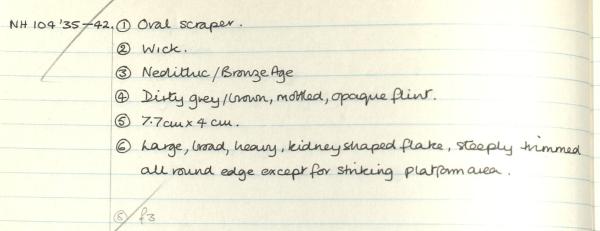 NH 104 '35-42. ① Oval scraper.
② Wick.
③ Neolithic/Bronze Age
④ Dirty grey/brown, mottled, opaque flint.
⑤ 7.7cm x 4 cm.
⑥ Large, broad, heavy, kidney shaped flake, steeply trimmed
all round edge except for striking platform area.
⑧ £3